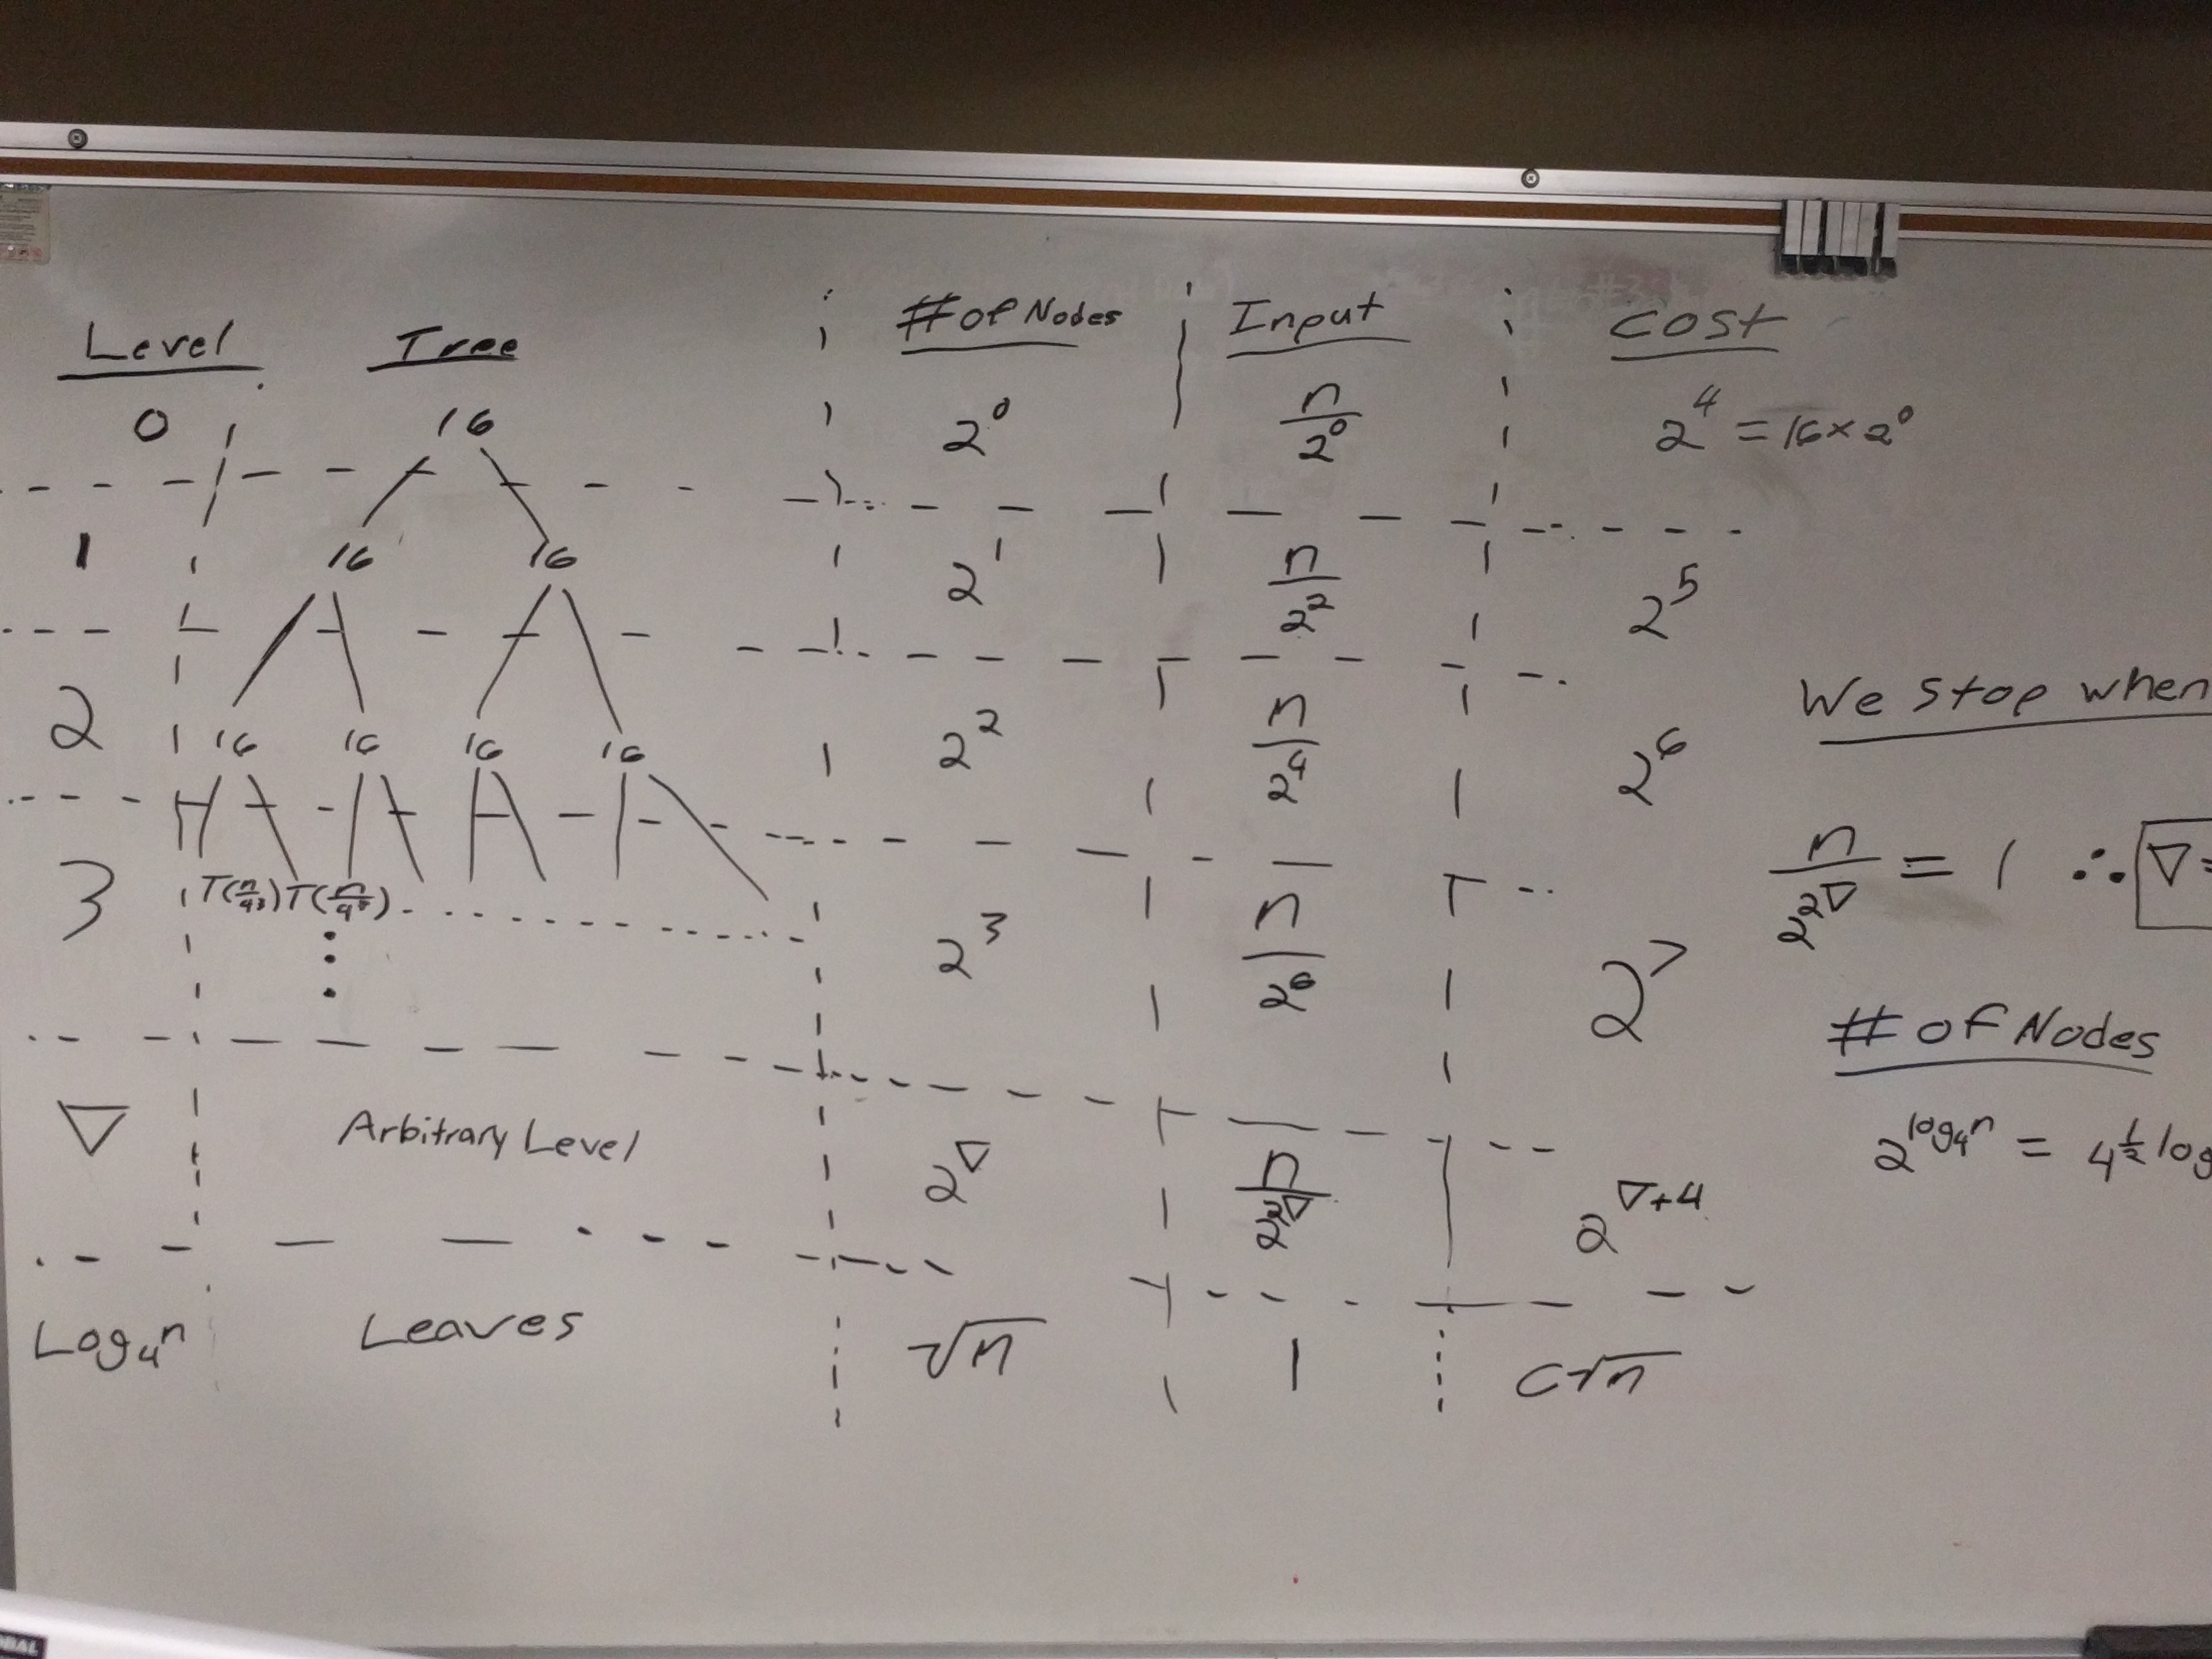 Level Tree # of Nodes Input Cost
0 16 2^0 n/2^0 2^4 = 16 × 2^0
1 16 16 2^1 n/2^2 2^5
2 16 16 16 16 2^2 n/2^4 2^6
3 T(n/4^3) T(n/4^3) 2^3 n/2^6 2^7
∇ Arbitrary Level 2^∇ n/2^2∇ 2^∇+4
Log₄n Leaves √n 1 c√n
We stop when
n/2^2∇ = 1 ∴ ∇ =
# of Nodes
2^log₄n = 4^½ log